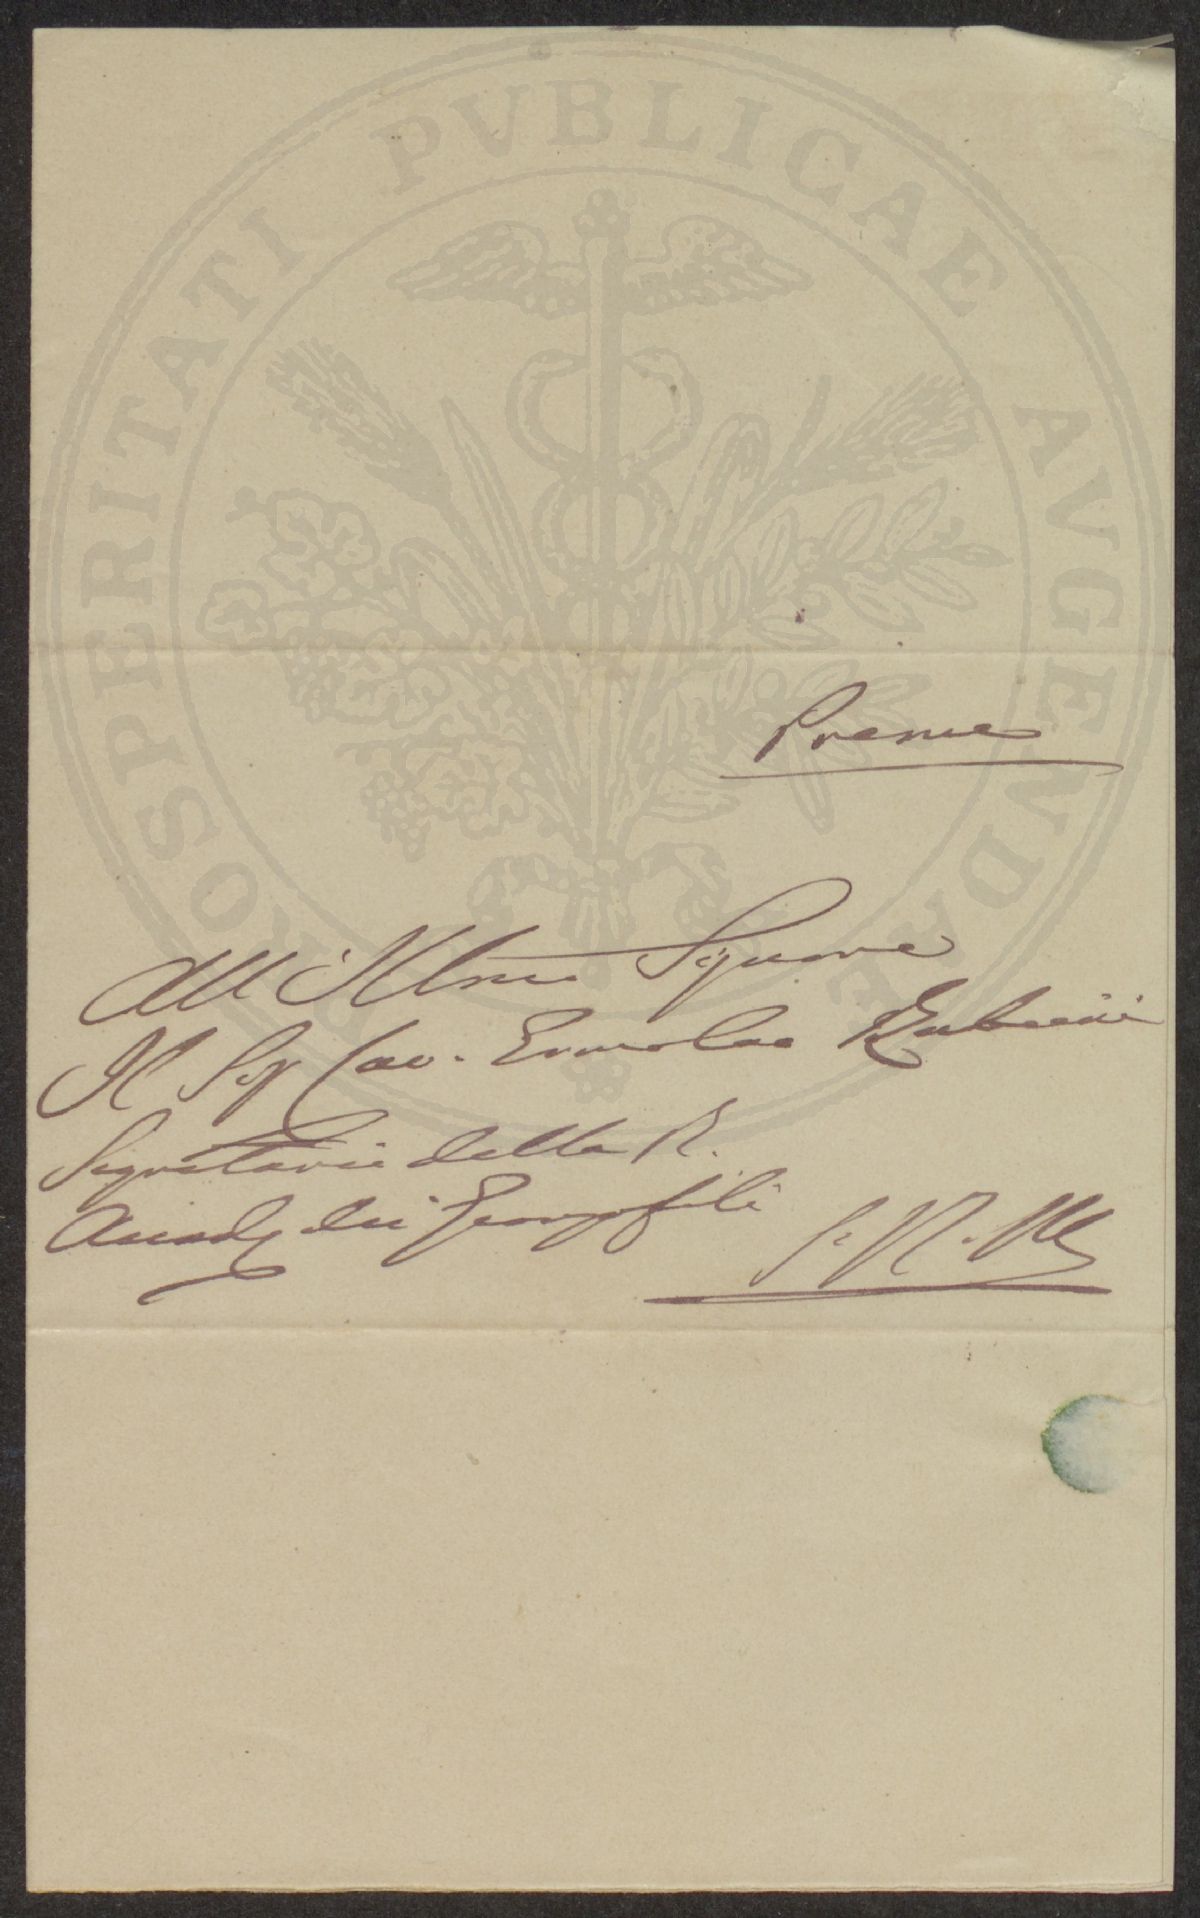 PROSPERITATI PVBLICAE AVGENDAE
Preme
All'Illmo Signore
Il Sig Cav. Ermolao Rubieri
Segretario della R.
Accad. dei Georgofili
S. R. M.